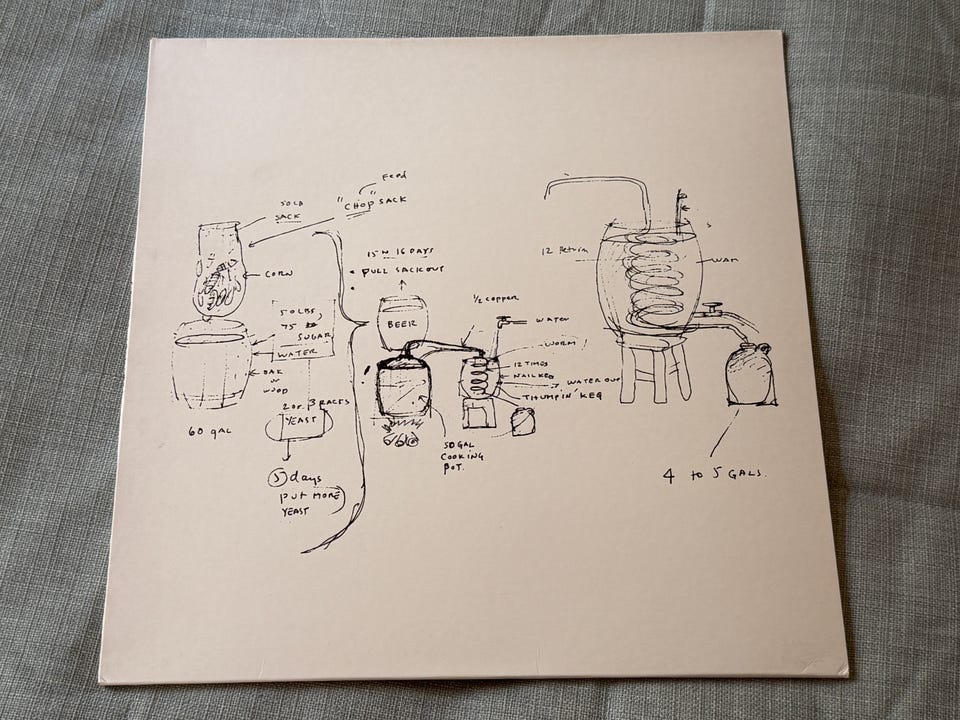 FEED
"CHOP" SACK
50 LB
SACK
CORN
50 LBS,
75
SUGAR
WATER
OAK
or
WOOD
60 gAL
2 or 3 PACKS
YEAST
5 days
PUT MORE
YEAST
15 to 16 DAYS
PULL SACK OUT
BEER
1/2 COPPER
WATER
WORM
12 TIMES
NAIL KEG
WATER OUT
THUMPIN' KEG
50 GAL
COOKING
POT.
12
4 to 5 GALS.